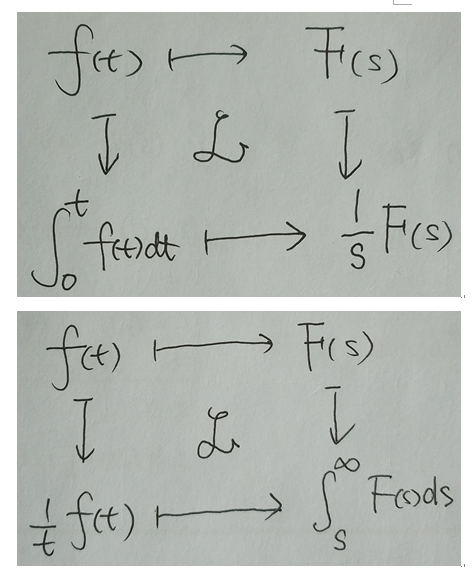 f(t) ↦ F(s)
↧ ℒ ↧
∫₀ᵗ f(t)dt ↦ 1/s F(s)
f(t) ↦ F(s)
↧ ℒ ↧
1/t f(t) ↦ ∫ₛ^∞ F(s)ds